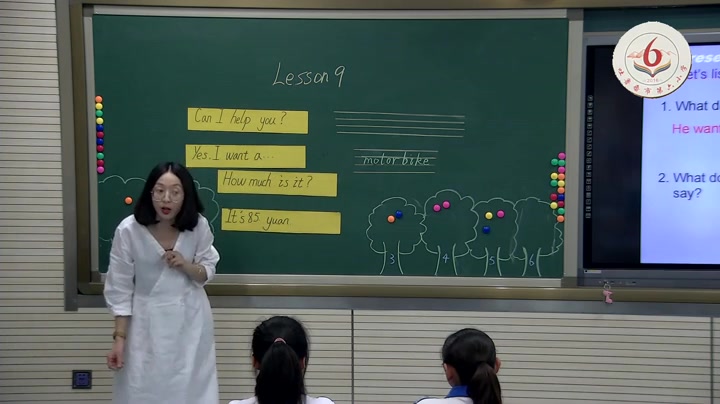 Lesson 9
Can I help you?
Yes. I want a...
How much is it?
It's 85 yuan.
motorbike
3
4
5
6
6
2016
吐鲁番市第六小学
1. What d
He want
2. What do
say?